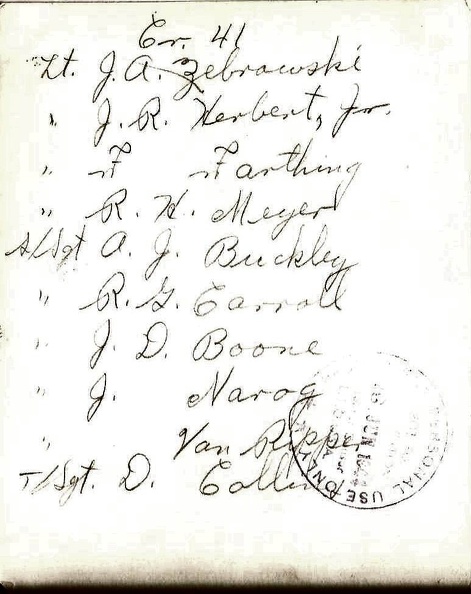 Cr. 41
Lt. J. A. Zebrowski
" J. R. Herbert, Jr.
" F Farthing
" R. H. Meyer
S/Sgt A. J. Buckley
" R. G. Carroll
" J. D. Boone
" J. Narog
" Van Ripper
T/Sgt. D. Collins
PERSONAL USE ONLY
JUN